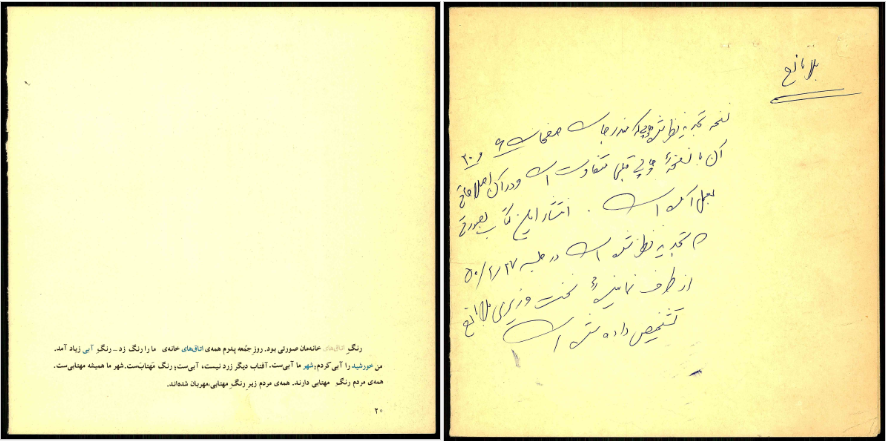 رنگ اتاق‌های خانه‌مان صورتی بود. روز جمعه پدرم همه‌ی اتاق‌های خانه‌ی ما را رنگ زد ــ رنگ آبی زیاد آمد.
من خورشید را آبی کردم، شهر ما آبی‌ست، آفتاب دیگر زرد نیست، آبی‌ست، رنگ مهتاب‌ست. شهر ما همیشه مهتابی‌ست.
همه‌ی مردم رنگ مهتابی دارند. همه‌ی مردم زیر رنگ مهتابی مهربان شده‌اند.
۲۰
بلامانع
نسخه تجدیدنظر شده چاپی که مندرجات صفحات ۶ و ۲۰
آن با نسخهٔ چاپی قبلی متفاوت است و در آن اصلاحاتی
بعمل آمده است. انتشار این کتاب بصورتی
که تجدیدنظر شده است در جلسه ۵۰/۲/۲۷
از طرف نمایندهٔ نخست وزیری بلامانع
تشخیص داده شده است